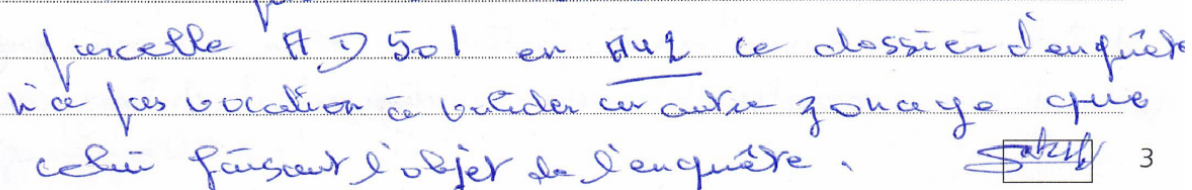 parcelle AD 501 en AU2 ce dossier d'enquête
n'a pas vocation à valider un autre zonage que
celui faisant l'objet de l'enquête. 3